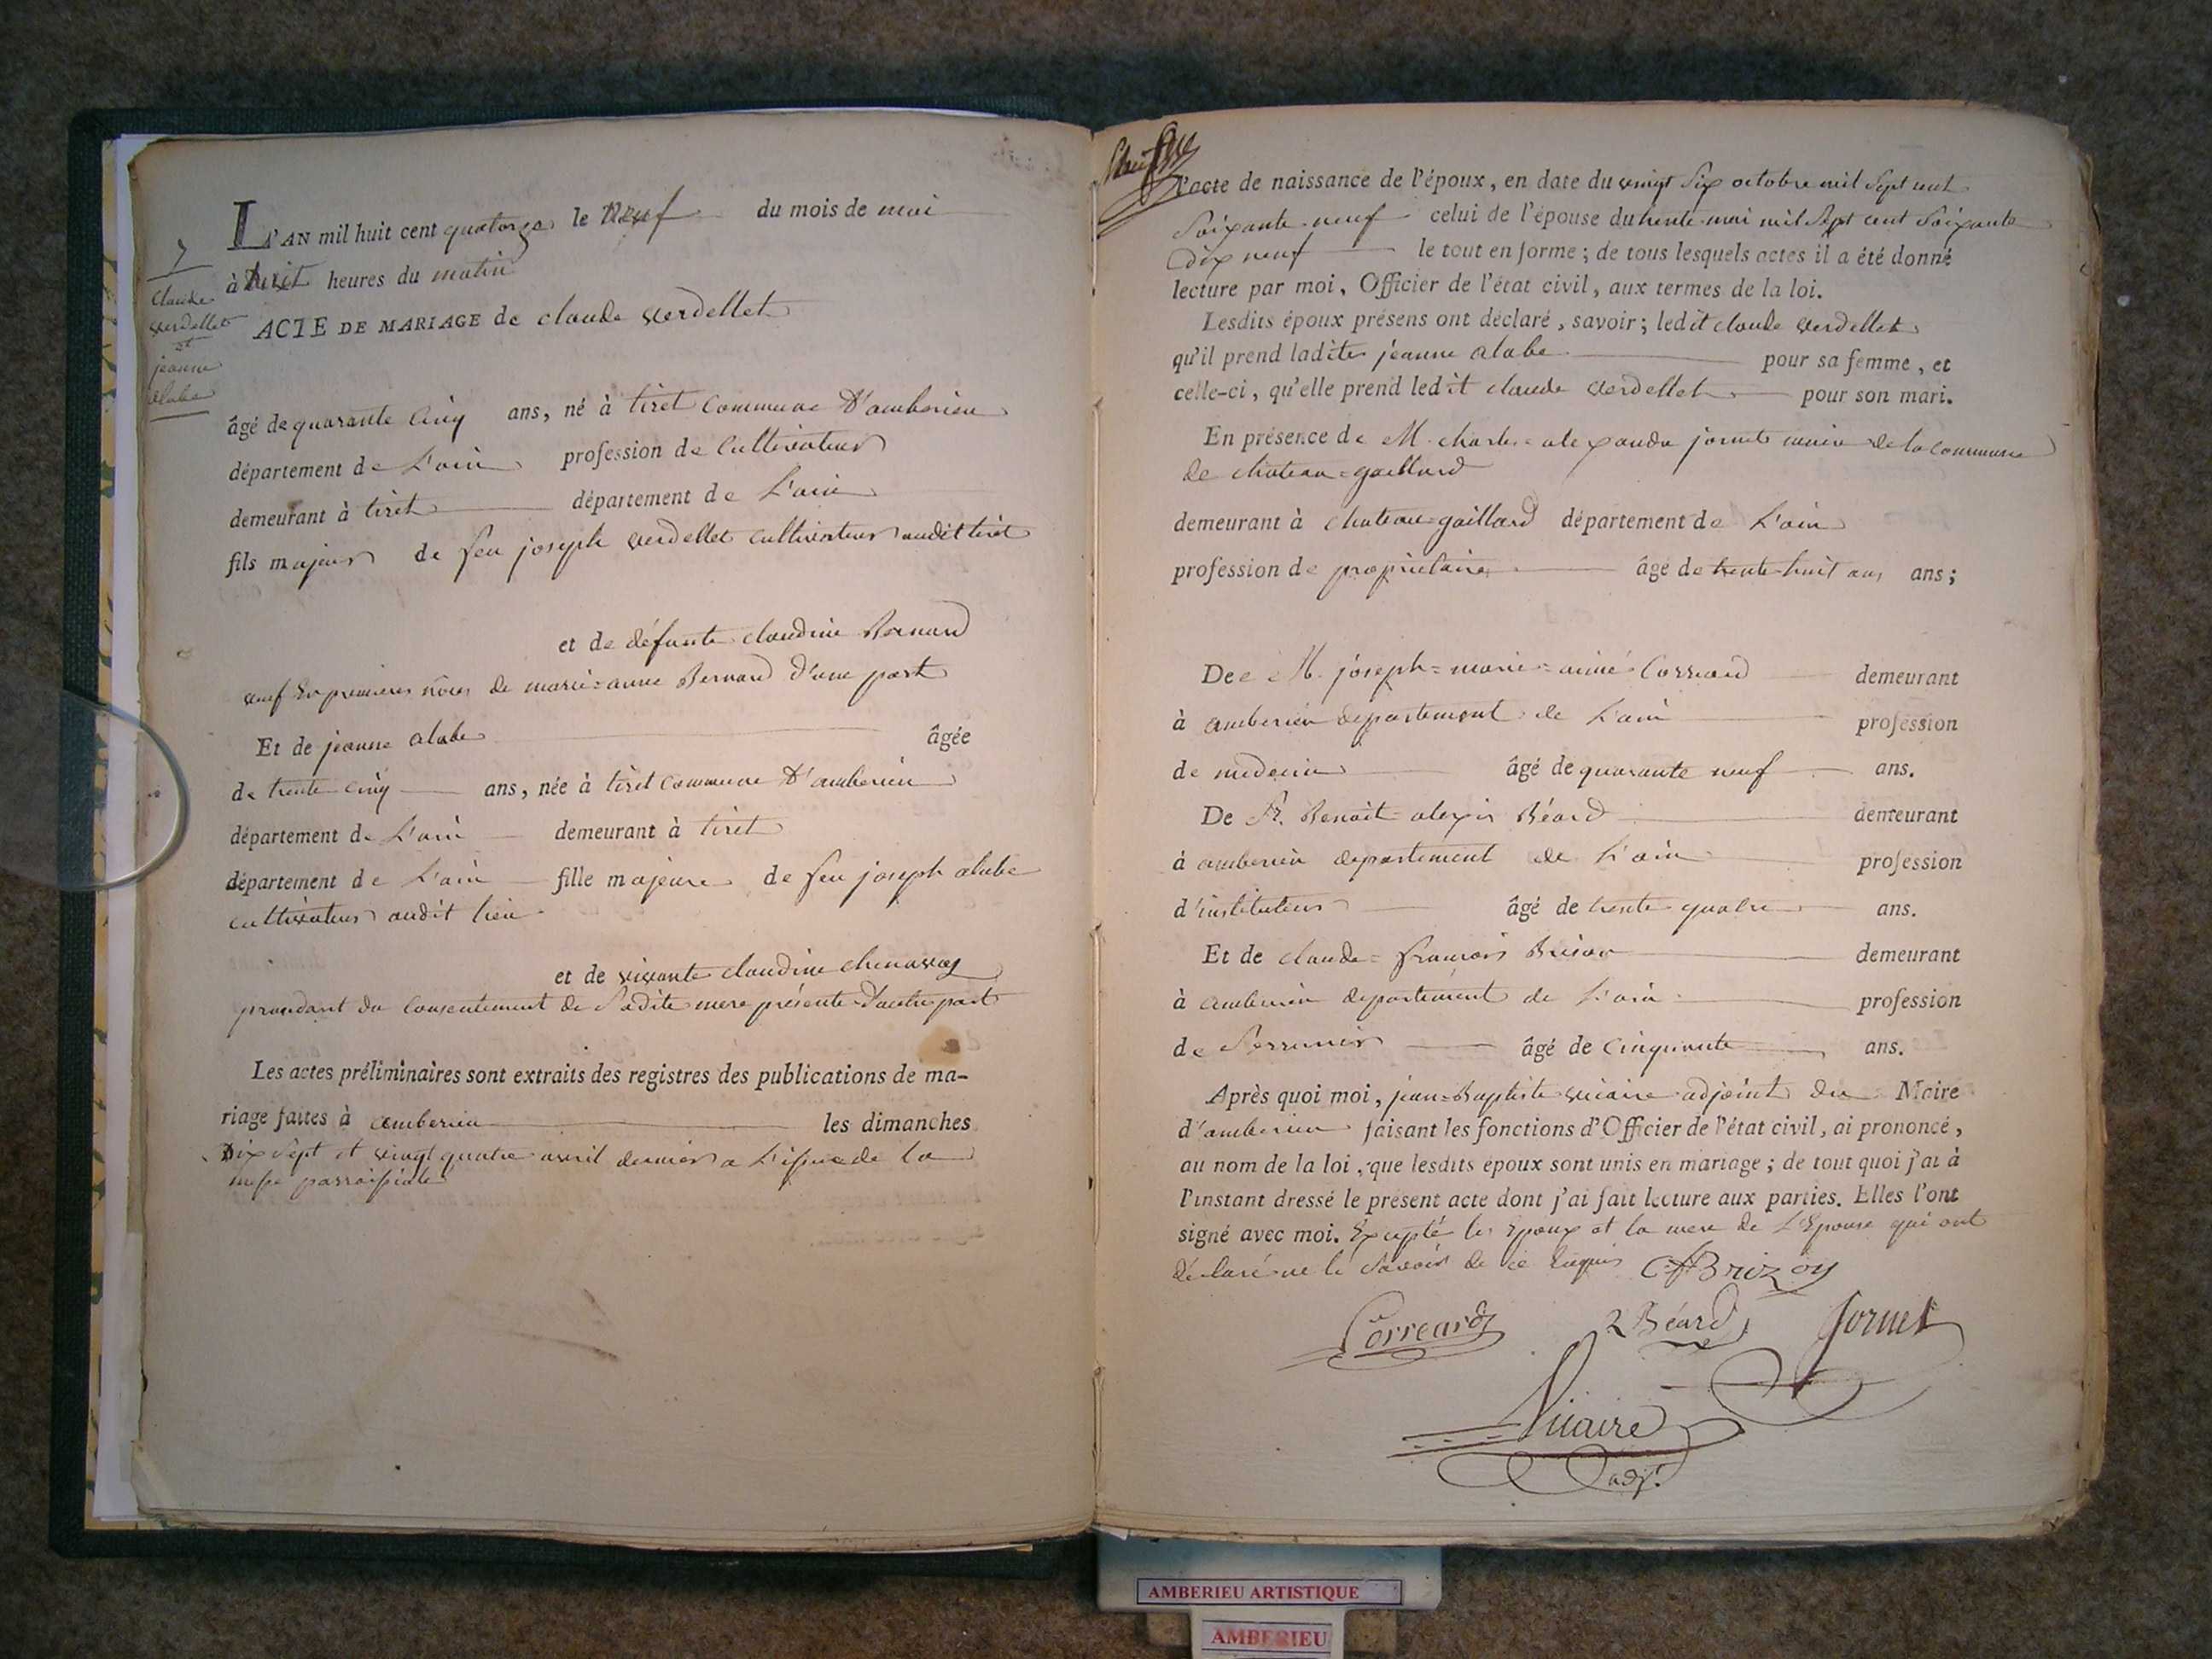 7
claude
verdellet
et
jeanne
alabe
L'AN mil huit cent quatorze le neuf du mois de mai
à huit heures du matin
ACTE DE MARIAGE de claude verdellet
âgé de quarante cinq ans, né à tiret commune d'amberieu
département de L'ain profession de cultivateur
demeurant à tiret département de L'ain
fils majeur de feu joseph verdellet cultivateur audit tiret
et de défunte claudine Bernard
veuf en premieres nôces de marie=anne Bernard d'une part
Et de jeanne alabe âgée
de trente cinq ans, née à tiret commune d'amberieu
département de L'ain demeurant à tiret
département de L'ain fille majeure de feu joseph alabe
cultivateur audit lieu
et de vivante claudine chenavas
procedant du consentement de sadite mere présente d'autre part
Les actes préliminaires sont extraits des registres des publications de ma-
riage faites à amberieu les dimanches
dix sept et vingt quatre avril dernier a L'issue de la
messe parroissiale
l'acte de naissance de l'époux, en date du vingt six octobre mil sept cent
soixante neuf celui de l'épouse du trente mai mil sept cent soixante
dix neuf le tout en forme ; de tous lesquels actes il a été donné
lecture par moi, Officier de l'état civil, aux termes de la loi.
Lesdits époux présens ont déclaré, savoir ; ledit claude verdellet
qu'il prend ladite jeanne alabe pour sa femme, et
celle-ci, qu'elle prend ledit claude verdellet pour son mari.
En présence de M. charles=alexandre jornet maire de la commune
de chateau=gaillard
demeurant à chateau=gaillard département de L'ain
profession de propriétaire âgé de trente huit ans ans ;
De M. joseph=marie=aimé Correard demeurant
à amberieu departement de L'ain profession
de medecin âgé de quarante neuf ans.
De Sr. Benoit=alexis Béard demeurant
à amberieu departement de L'ain profession
d'instituteur âgé de trente quatre ans.
Et de claude=françois Brison demeurant
à amberieu departement de L'ain profession
de Serrurier âgé de cinquante ans.
Après quoi moi, jean=Baptiste vicaire adjoint du Maire
d'amberieu faisant les fonctions d'Officier de l'état civil, ai prononcé,
au nom de la loi, que lesdits époux sont unis en mariage ; de tout quoi j'ai à
l'instant dressé le présent acte dont j'ai fait lecture aux parties. Elles l'ont
signé avec moi. Excepté les époux et la mere de L'Epouse qui ont
déclaré ne le savoir de ce enquis C f Brizon
Correard Béard Jornet
Vicaire
adjt.
AMBERIEU ARTISTIQUE
AMBERIEU